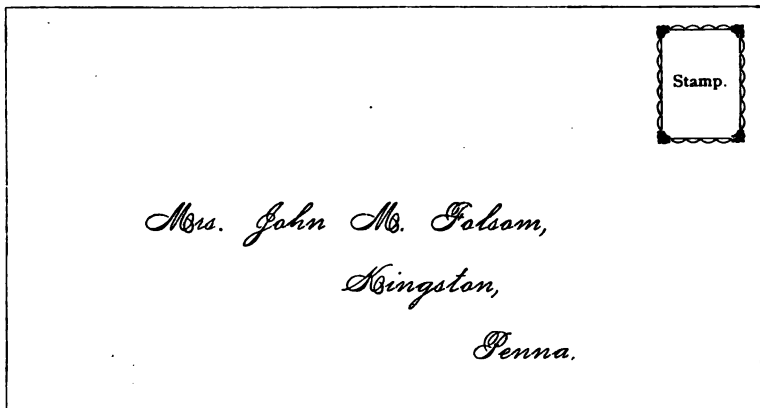 Stamp.
Mrs. John M. Folsom,
Kingston,
Penna.